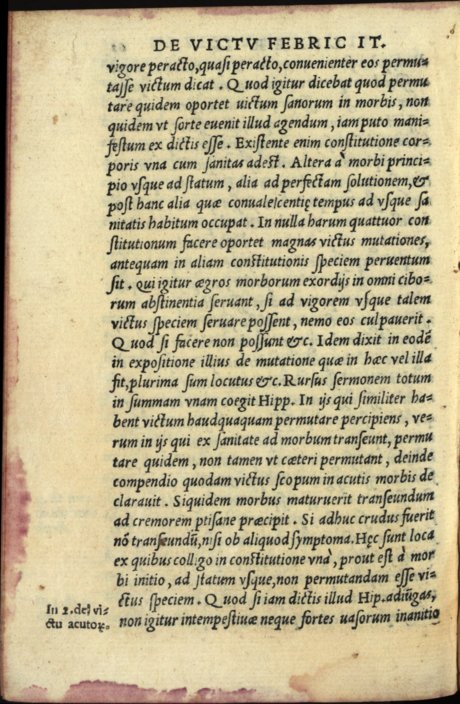 DE VICTV FEBRICIT.
vigore peracto, quasi peracto, convenienter eos permu=
tasse victum dicat. Quod igitur dicebat quod permu
tare quidem oportet uictum sanorum in morbis, non
quidem vt sorte evenit illud agendum, iam puto mani=
festum ex dictis esse. Existente enim constitutione cor=
poris vna cum sanitas adest. Altera à morbi princi=
pio vsque ad statum, alia ad perfectam solutionem, &
post hanc alia quæ conualescentię tempus ad vsque sa
nitatis habitum occupat. In nulla harum quattuor con
stitutionum facere oportet magnas victus mutationes,
antequam in aliam constitutionis speciem peruentum
sit. qui igitur ægros morborum exordijs in omni cibo=
rum abstinentia seruant, si ad vigorem vsque talem
victus speciem seruare possent, nemo eos culpauerit.
Quod si facere non possunt &c. Idem dixit in eodē
in expositione illius de mutatione quæ in hæc vel illa
fit, plurima sum locutus &c. Rursus sermonem totum
in summam vnam coegit Hipp. In ijs qui similiter ha=
bent victum haudquaquam permutare percipiens, ve=
rum in ijs qui ex sanitate ad morbum transeunt, permu
tare quidem, non tamen vt cæteri permutant, deinde
compendio quodam victus scopum in acutis morbis de
clarauit. Siquidem morbus maturuerit transeundum
ad cremorem ptisane præcipit. Si adhuc crudus fuerit
nō transeundū, nisi ob aliquod symptoma. Hęc sunt loca
ex quibus colligo in constitutione vnà, prout est à mor
bi initio, ad statum vsque, non permutandam esse vi=
ctus speciem. Quod si iam dictis illud Hip. adiūgas,
In 2. de vi=
ctu acutoꝝ.
non igitur intempestiuæ neque fortes uasorum inanitio